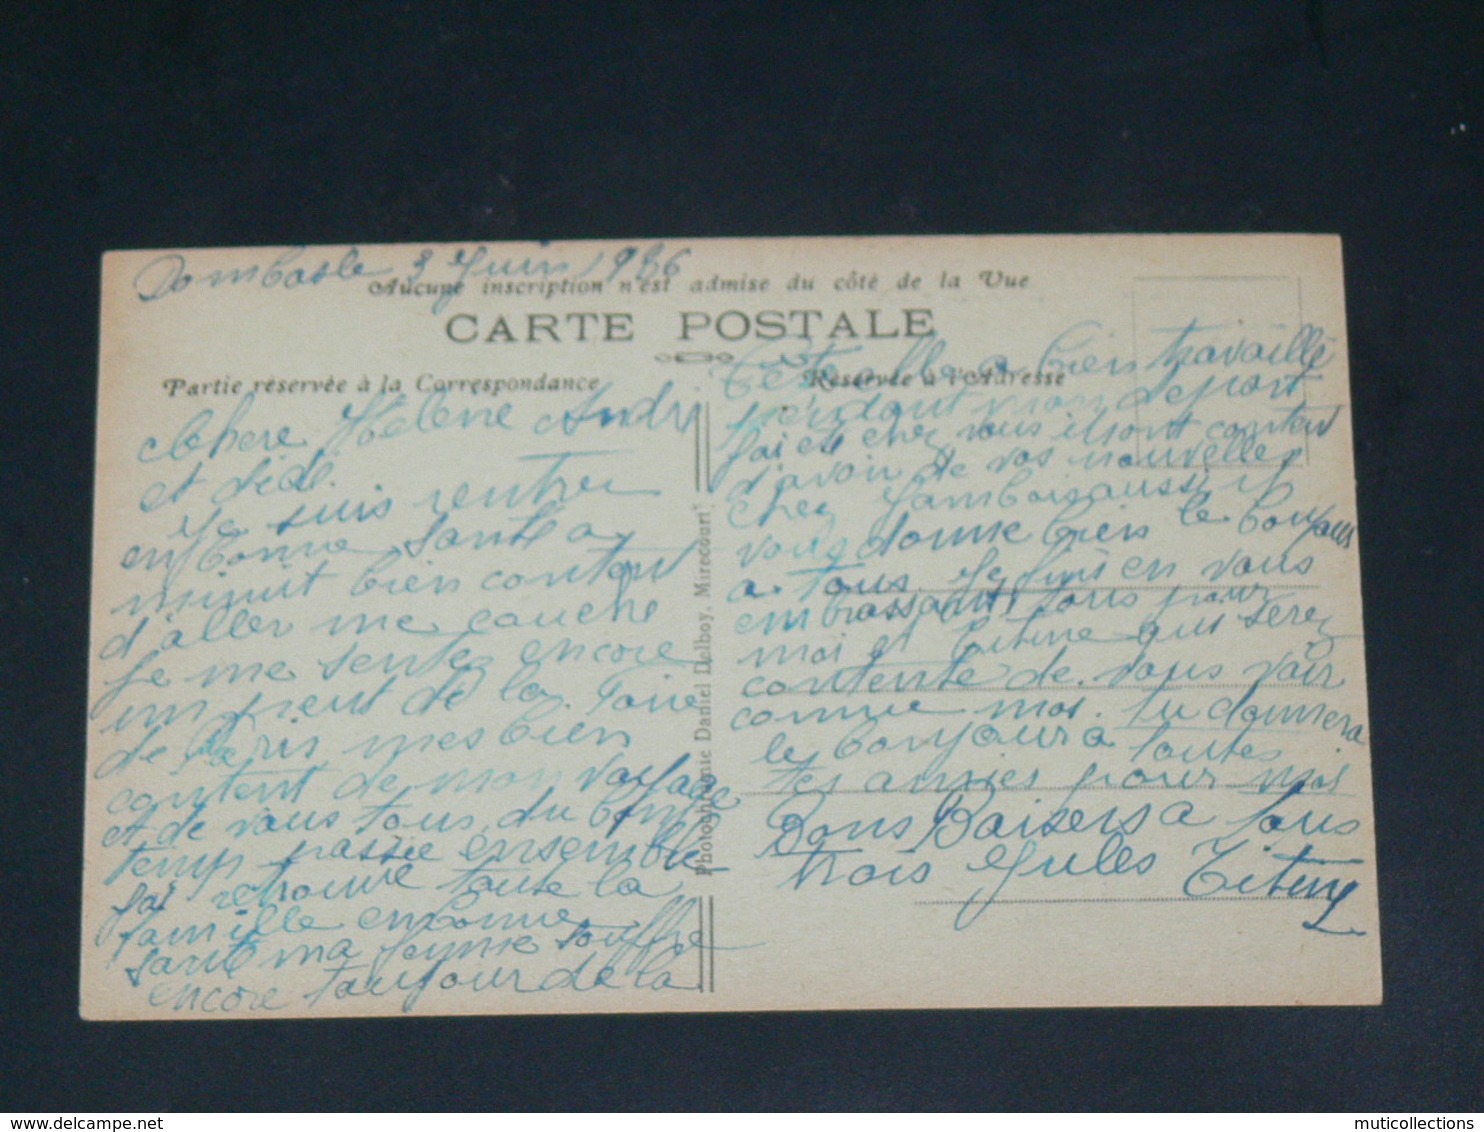 Dombasle 3 Juin 1936
Aucune inscription n'est admise du côté de la Vue
CARTE POSTALE
Partie réservée à la Correspondance
Réservée à l'Adresse
chere Hélène André
et dédé.
Je suis rentrer
en bonne santé a
minuit bien content
d'aller me couché
Je me sentez encore
un peut de la Foire
de Paris mes bien
content de mon voyage
et de vous tous du bon
temp passée ensemble
Jai retrouvé toute la
famille en bonne
santé ma femme souffre
encore toujour de la
tête elle a bien travaillé
pendant mon depart
Jai été chez vous il sont content
d'avoir de vos nouvelles
chez aussi il
vous donne bien le bonjour
a tous. Je fini en vous
embrassant tous pour
moi et Titine qui serez
contente de vous voir
comme moi. tu donnera
le bonjour a toutes
tes amies pour moi
Bons Baisers a tous
trois Jules Titine
Photographie Daniel Delboy, Mirecourt
muticollections